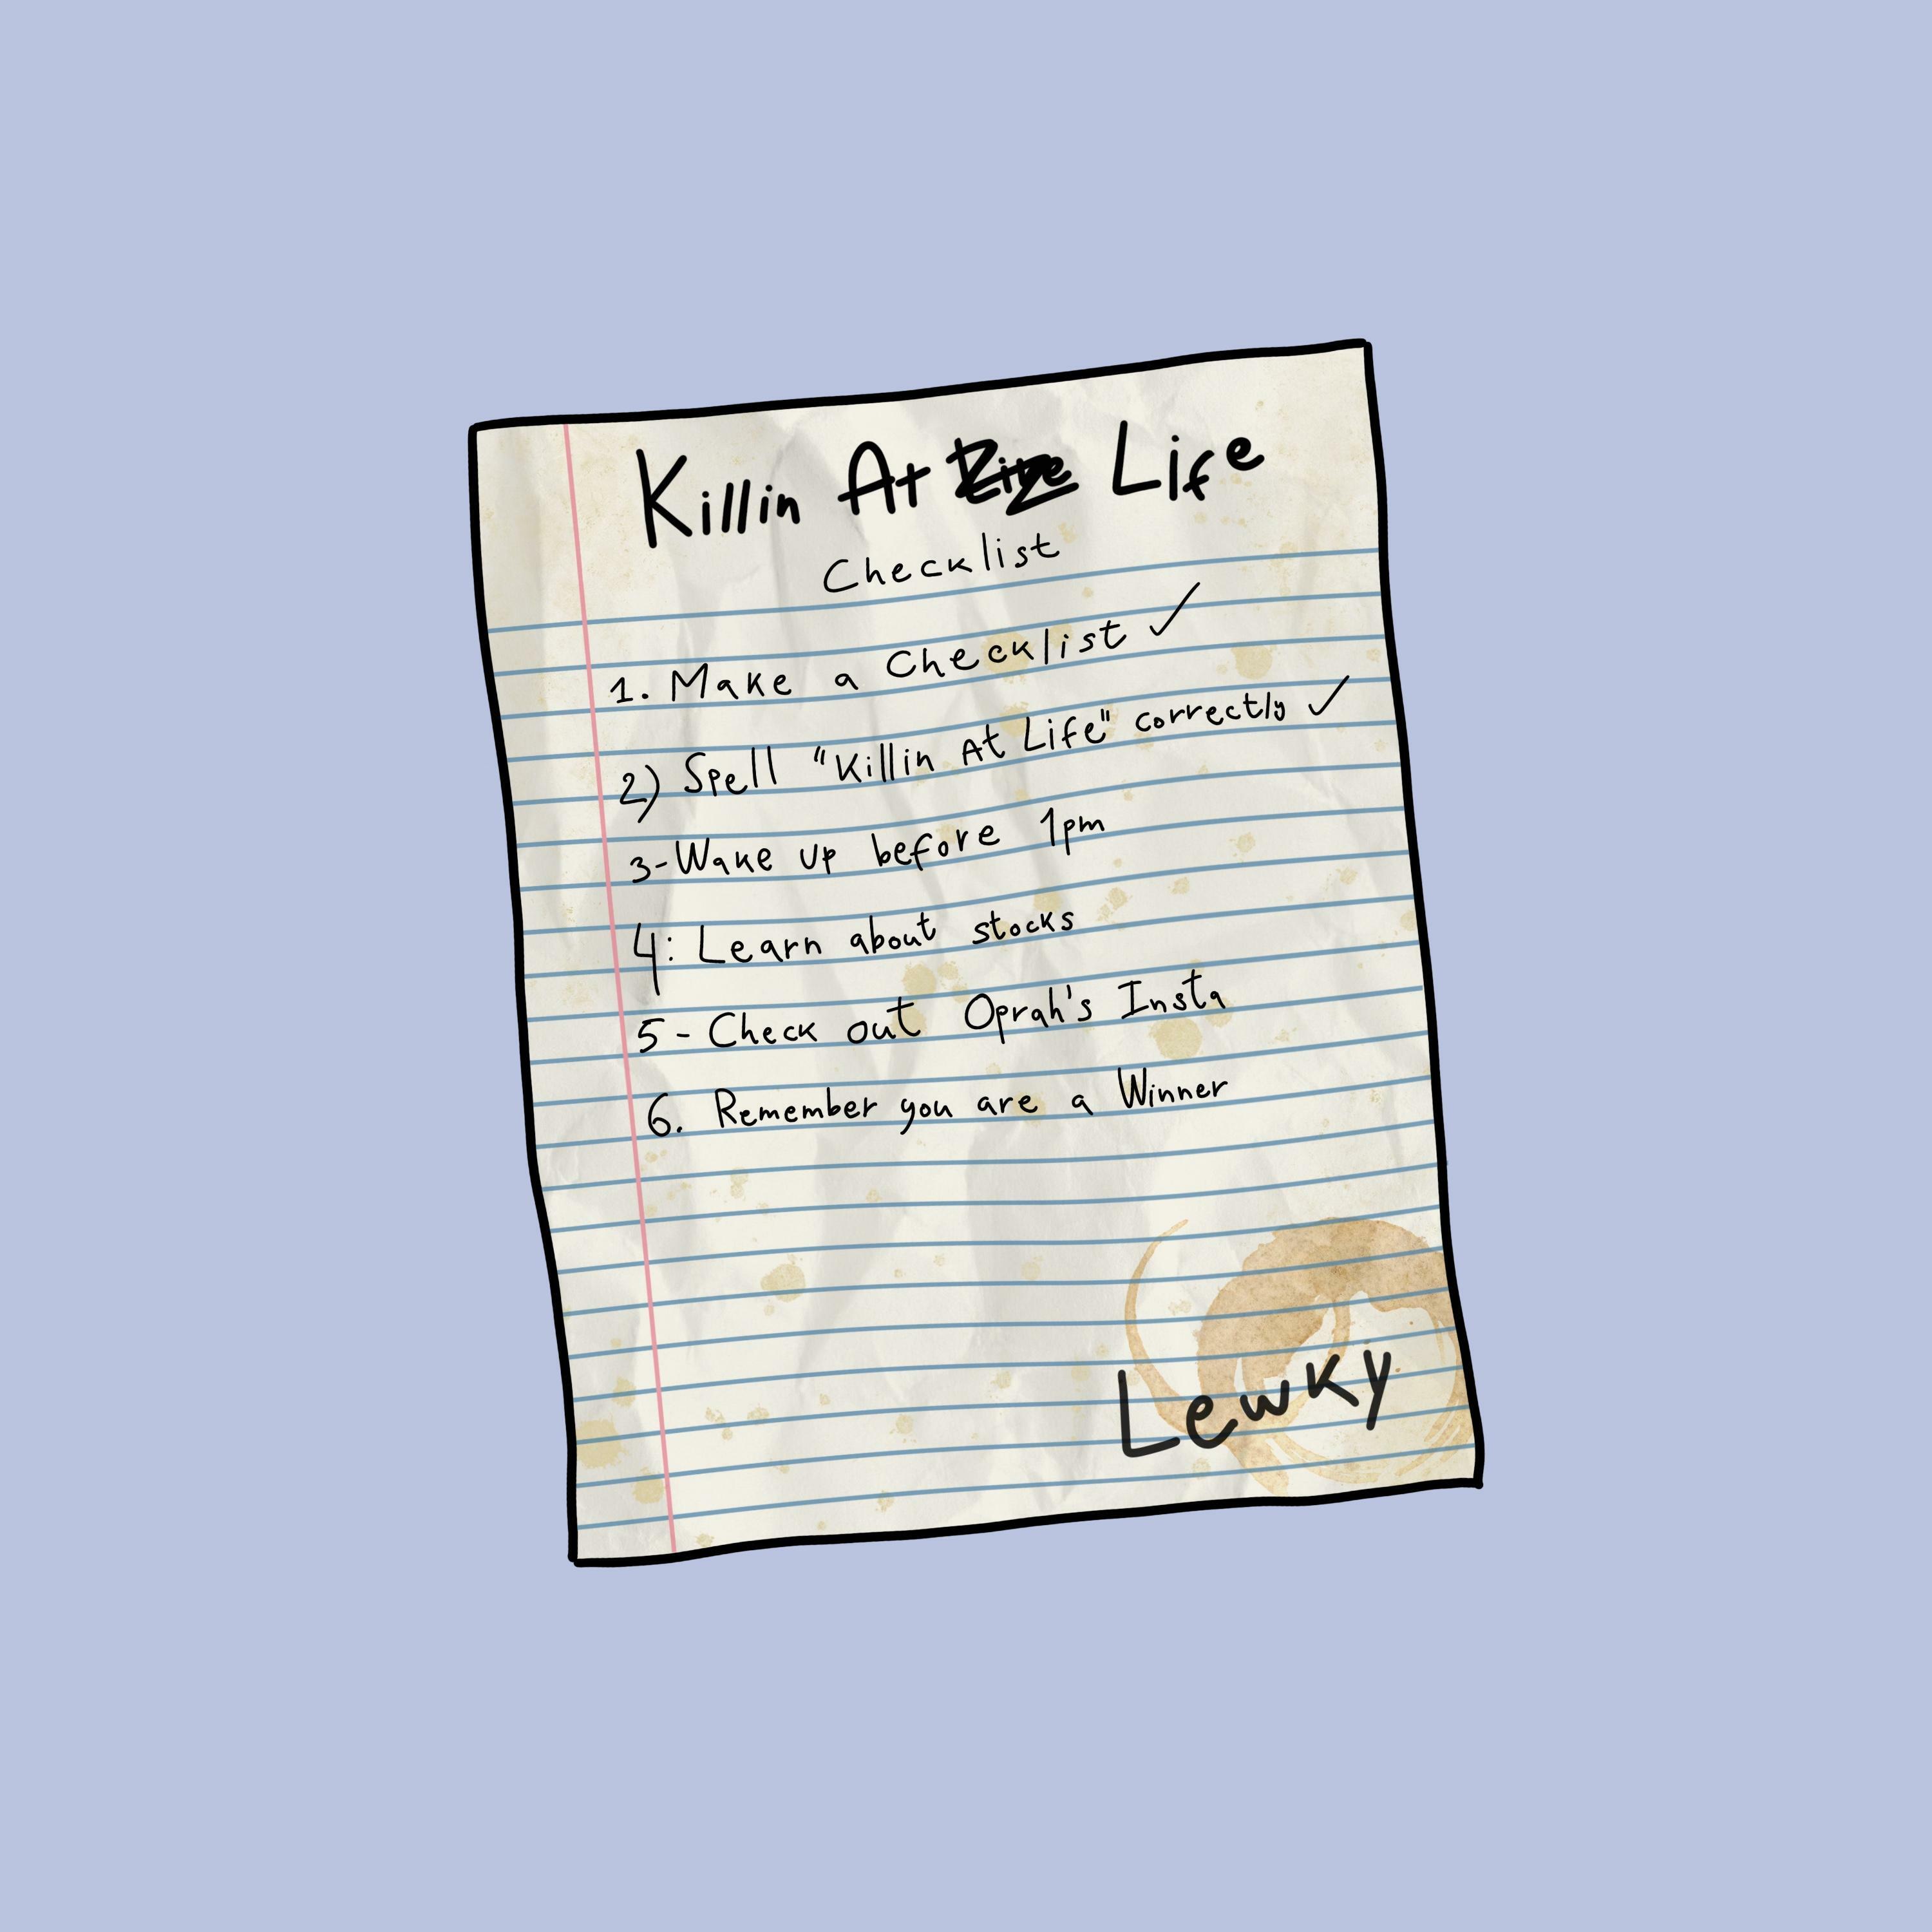 Killin At Life
Checklist
1. Make a Checklist ✓
2) Spell "Killin At Life" correctly ✓
3-Wake up before 1pm
4: Learn about stocks
5- Check out Oprah's Insta
6. Remember you are a Winner
Lewky